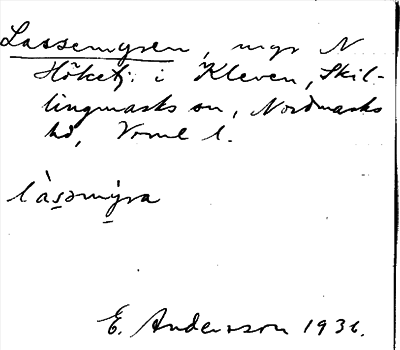 Lassemyren, myr N
Höketj. i Kleven, Skil-
lingmarks sn, Nordmarks
hd, Vrml l.
làs̠əmy̠ra
E. Andersson 1936.